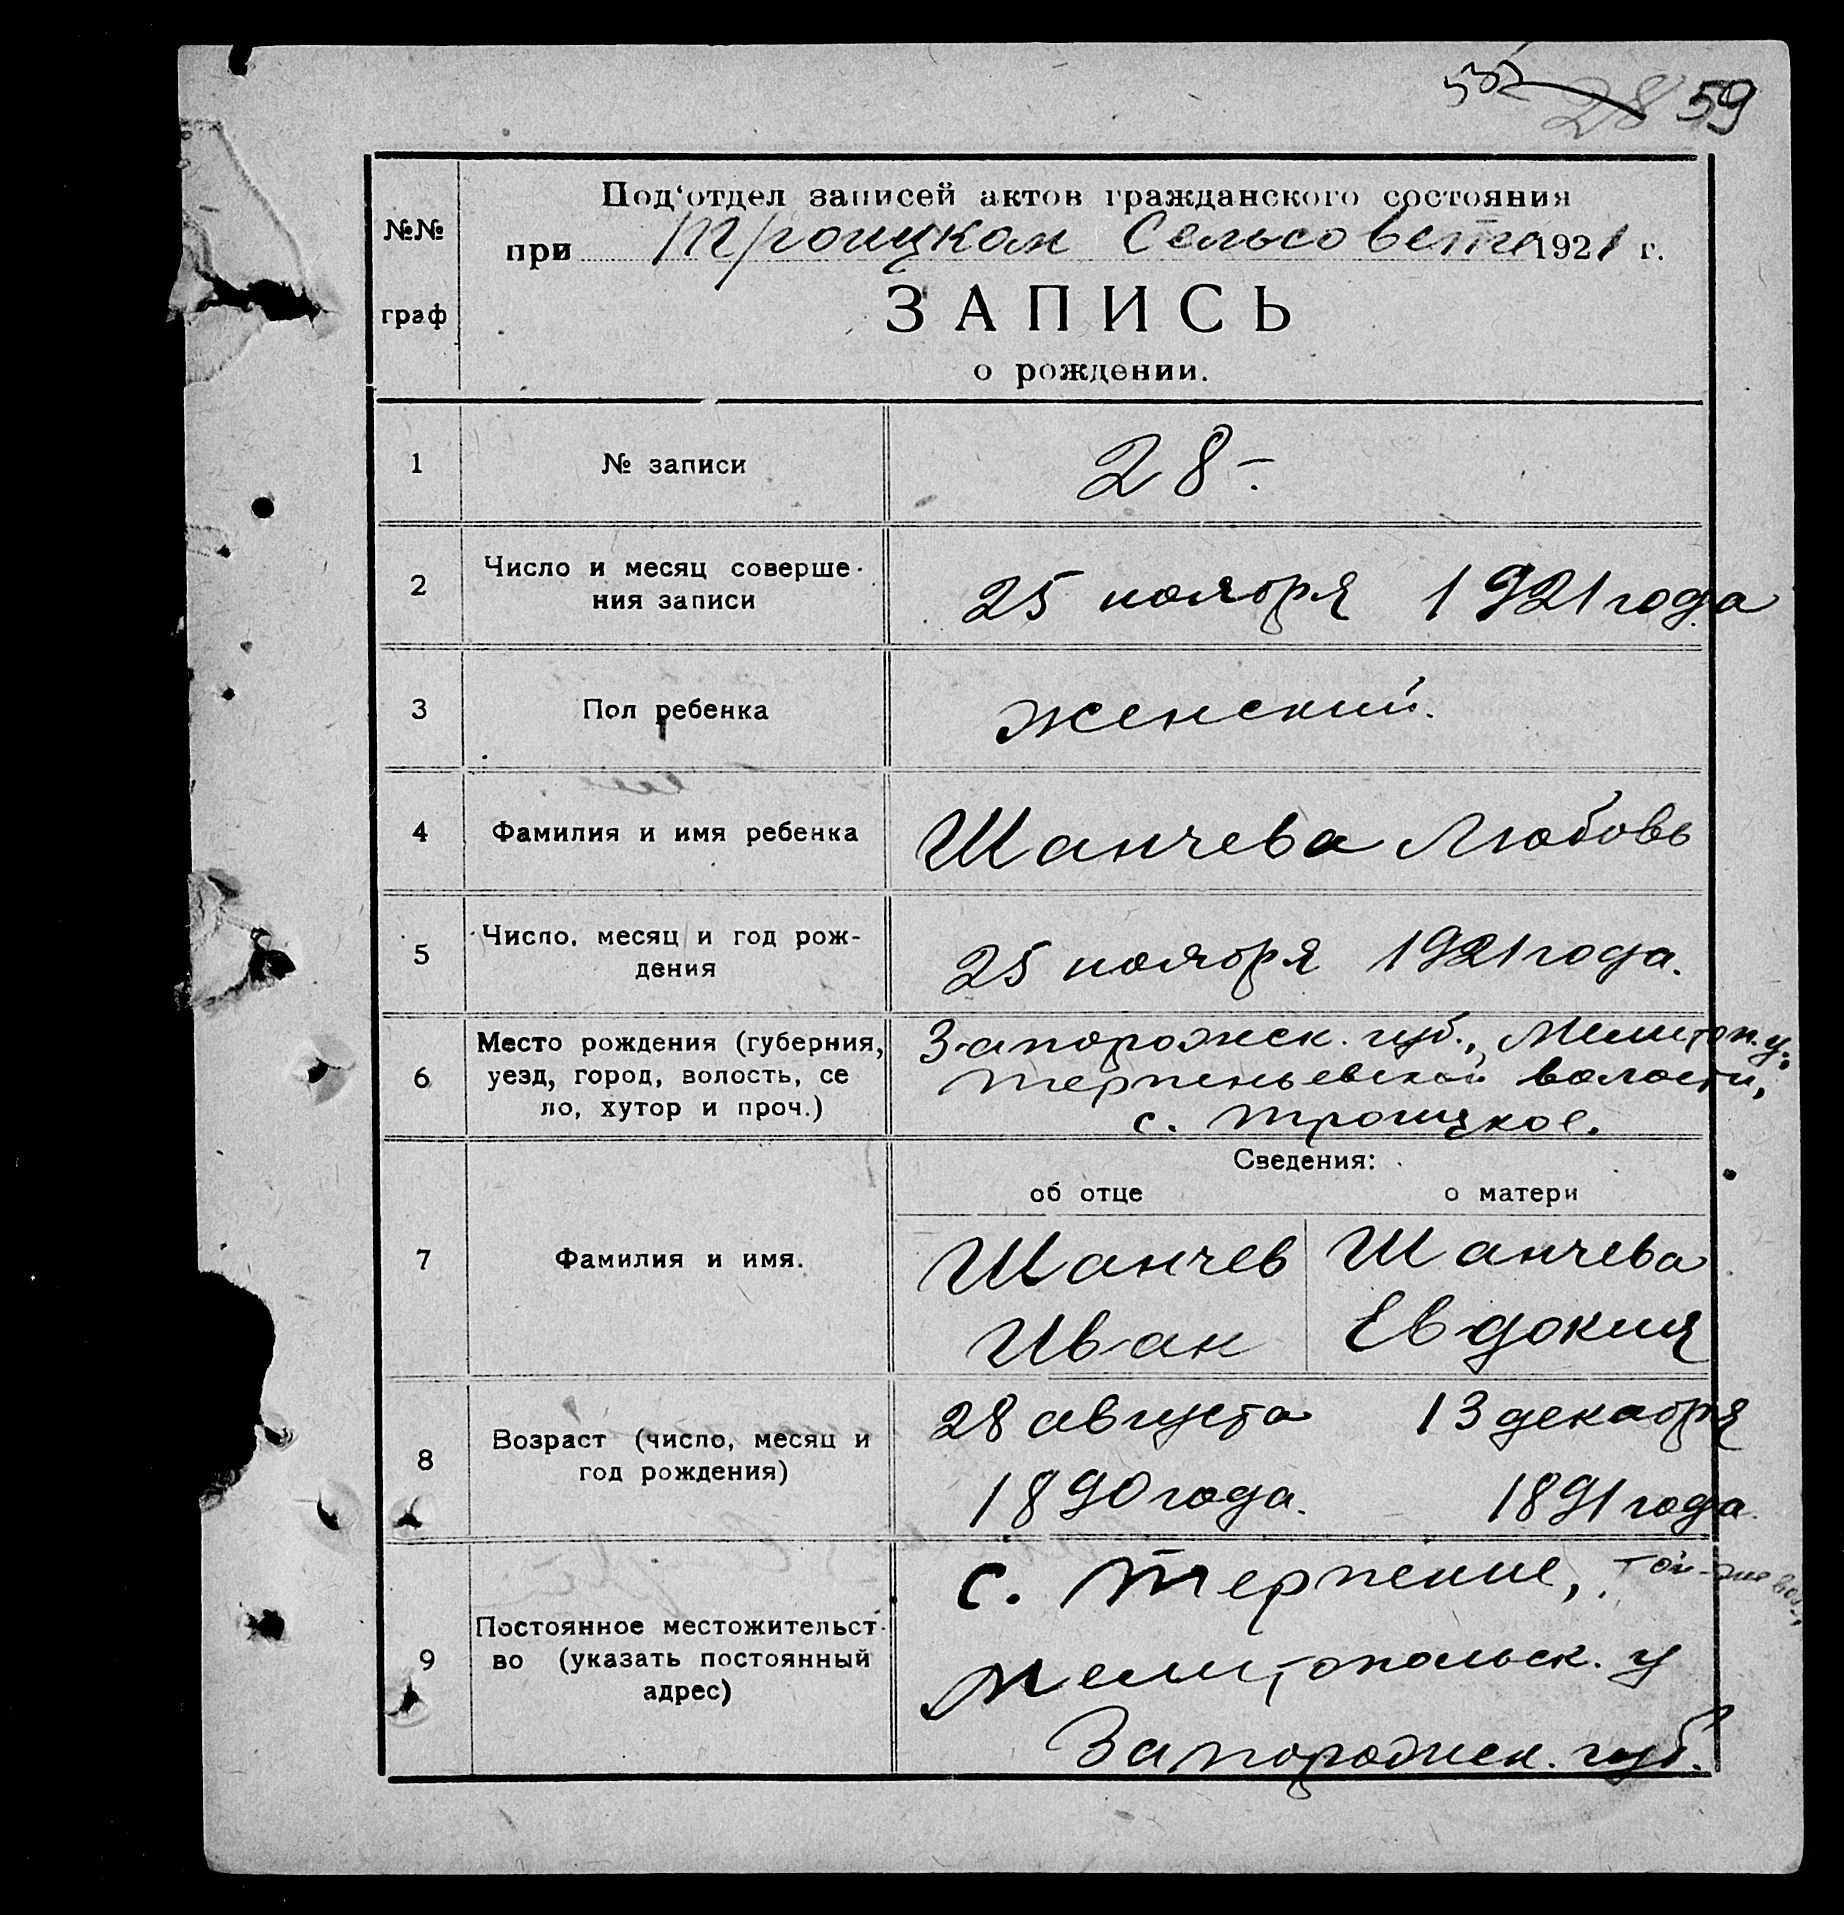 28 59
Под‘отдел записей актов гражданского состояния
№№
при Троицком Сельсовете 1921 г.
граф
ЗАПИСЬ
о рождении.
1 № записи 28-.
2 Число и месяц соверше-
ния записи
25 ноября 1921 года
3 Пол ребенка женский.
4 Фамилия и имя ребенка Шанчева Любовь
5 Число, месяц и год рож-
дения
25 ноября 1921 года.
6 Место рождения (губерния,
уезд, город, волость, се
ло, хутор и проч.)
Запорожск. губ., Мелитоп. у.
Терпеньевской волости,
с. Троицкое.
Сведения:
об отце о матери
7 Фамилия и имя.
Шанчев Шанчева
Иван Евдокия
8 Возраст (число, месяц и
год рождения)
28 августа 13 декабря
1890 года. 1891 года.
9 Постоянное местожительст-
во (указать постоянный
адрес)
с. Терпение, той-же вол.,
Мелитопольск. у
Запорожск. губ.